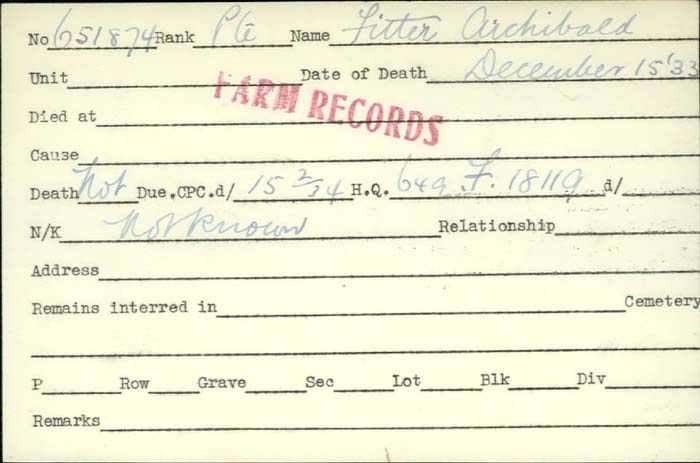 No 651874 Rank Pte Name Fitter Archibald
Unit Date of Death December 15 '33
FARM RECORDS
Died at
Cause
Death Not Due. CPC. d/ 15 2/34 H.Q. 649. F. 18119 d/
N/K Not Known Relationship
Address
Remains interred in Cemetery
P Row Grave Sec Lot Blk Div
Remarks